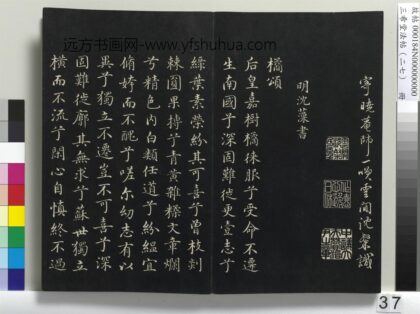 故帖 000184N000000000
三希堂法帖(二七) 冊
远方书画网-www.yfshuhua.com
寧曉菴師一笑雲间沈粲識
明沈藻書
橘頌
后皇嘉樹橘徠服兮受命不遷
生南國兮深固難徙更壹志兮
綠葉素榮紛其可喜兮曾枝剡
棘圓果摶兮青黃雜糅文章爛
兮精色内白類任道兮紛緼宜
脩姱而不醜兮嗟尔幼志有以
異兮獨立不遷豈不可喜兮深
固難徙廓其無求兮蘇世獨立
橫而不流兮閑心自慎終不過
37